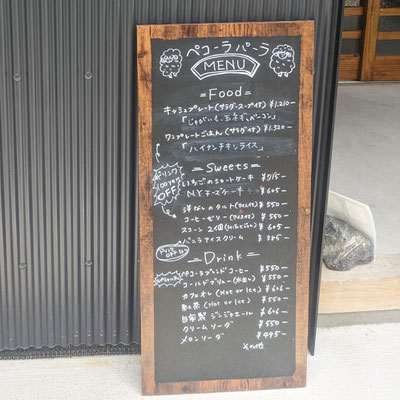 ペコーラパーラ
MENU
=Food=
キッシュプレート(サラダ・スープ付) ¥1,210-
「じゃがいも、玉ネギ、ベーコン」
ワンプレートごはん(サラダ付) ¥1,320-
「ハイナンチキンライス」
=Sweets=
ドリンク
100yen
OFF
いちごのショートケーキ ¥715-
NYチーズケーキ ¥605-
洋なしのタルト ¥550-
コーヒーゼリー ¥550-
スコーン 2個 ¥550-
バニラアイスクリーム ¥385-
=Drink=
ペコーラブレンドコーヒー ¥550-
コールドブリュー(水出し) ¥550-
カフェオレ(Hot or Ice) ¥606-
紅茶(Hot or Ice) ¥550-
自家製ジンジャエール ¥606-
クリームソーダ ¥550-
メロンソーダ ¥495-
その他